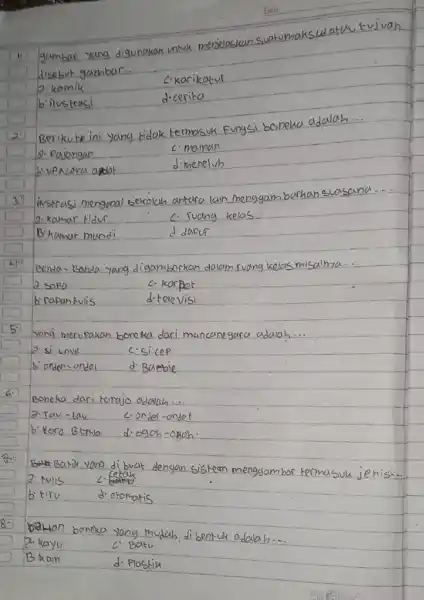 1. gambar yang digunakan untuk menjelaskan suatu maksud atau tujuan
disebut gambar...
a. komik c. karikatul
b. ilustrasi d. cerita
2. Berikut ini yang tidak termasuk Fungsi boneka adalah...
a. Pajangan c. mainan
b. upacara adat d. meneluh
3. ilustrasi mengenai sekolah antara lain menggambarkan suasana...
a. kamar tidur c. ruang kelas
B. kamar mandi d. dapur
4. Benda-Benda yang digambarkan dalam ruang kelas misalnya...
a. SOFa c. karpet
b. papan tulis d. televisi
5. yang merupakan boneka dari mancanegara adalah...
a. si unyil c. si cep
b. ondel-ondel d. Barbie
6. Boneka dari toraja adalah...
a. Tau-tau c. ondel-ondel
b. d. ogoh-ogoh
Batik yang dibuat dengan sistem menggambar termasuk jenis...
a. tulis c. cetak
b. tiru d. otomatis
8. bahan boneka yang mudah di bentuk adalah...
a. kayu c. Batu
B. kain d. Plastik